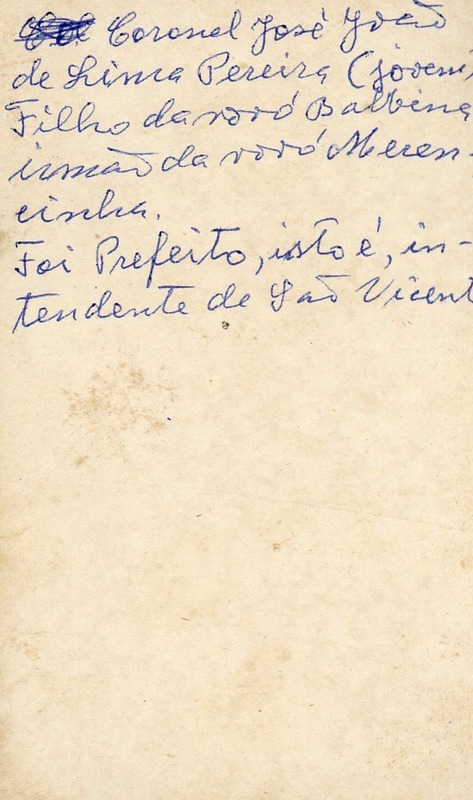 Coronel José João
de Lima Pereira (jovem
Filho da vovó Balbina
irmão da vovó Meren-
cinha.
Foi Prefeito, isto é, in-
tendente de São Vicent